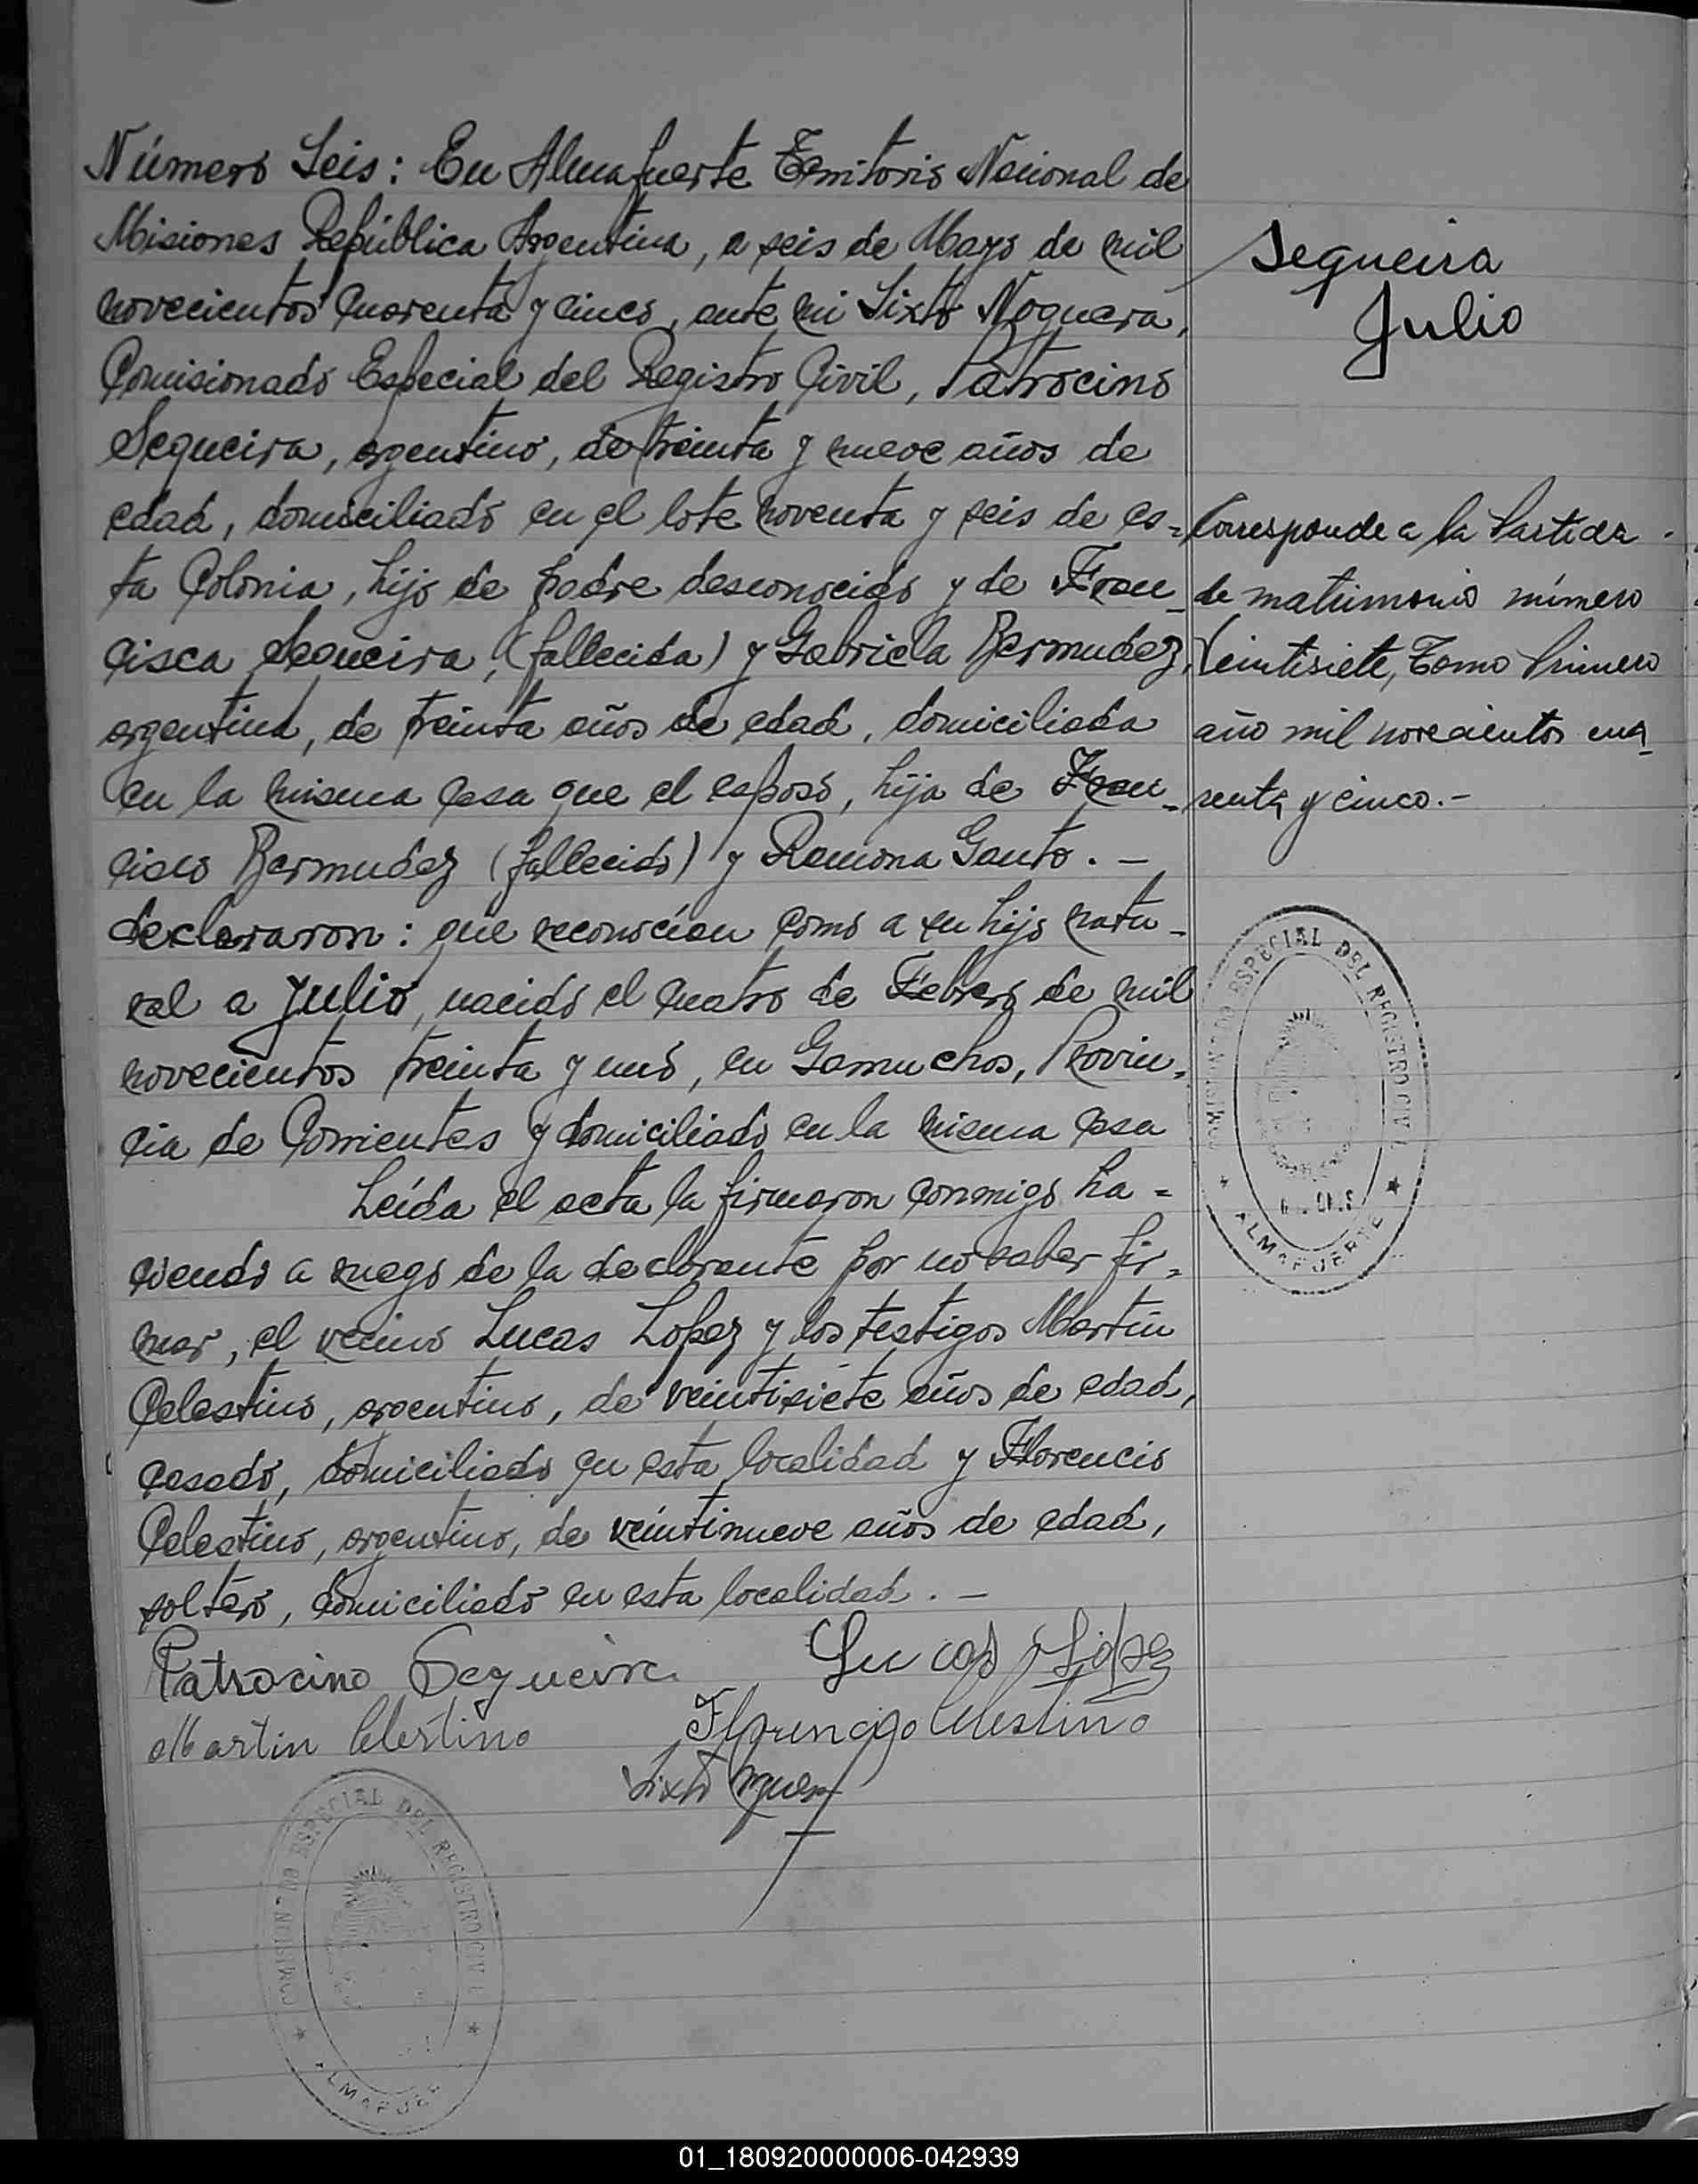 Número Seis: En Almafuerte Territorio Nacional de
Misiones República Argentina, a seis de Mayo de mil
novecientos cuarenta y cinco, ante mi Sixto Noguera,
Comisionado Especial del Registro Civil, Patrocino
Sequeira, argentino, de treinta y nueve años de
edad, domiciliado en el lote noventa y seis de es=
ta Colonia, hijo de padre desconocido y de Fran_
cisca Sequeira, (fallecida) y Gabriela Bermudez,
argentina, de treinta años de edad, domiciliada
en la misma casa que el esposo, hija de Fran_
cisco Bermudez (fallecido) y Ramona Gauto. —
declararon: que reconocían como a su hijo natu_
ral a Julio, nacido el cuatro de Febrero de mil
novecientos treinta y uno, en Gamuchos, Provin=
cia de Corrientes y domiciliado en la misma casa
Leída el acta la firmaron conmigo ha=
ciendo a ruego de la declarante por no saber fir=
mar, el vecino Lucas Lopez y los testigos Martin
Celestino, argentino, de veintisiete años de edad,
casado, domiciliado en esta localidad y Florencio
Celestino, argentino, de veintinueve años de edad,
soltero, domiciliado en esta localidad. —
Patrocino Sequeira
Lucas Lopez
Martin Celestino
Florencio Celestino
Sixto Noguera
Sequeira
Julio
Corresponde a la Partida
de matrimonio número
Veintisiete, Tomo Primero
año mil novecientos cua_
renta y cinco.-
COMISIONADO ESPECIAL DEL REGISTRO CIVIL
ALMAFUERTE
COMISIONADO ESPECIAL DEL REGISTRO CIVIL
ALMAFUE
01_180920000006-042939